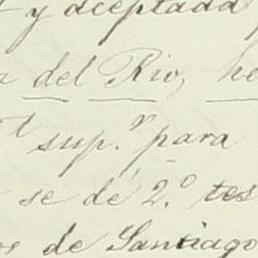 y aceptada
del Rio, he
sup.r para
se dé 2.o tes
de Santiago